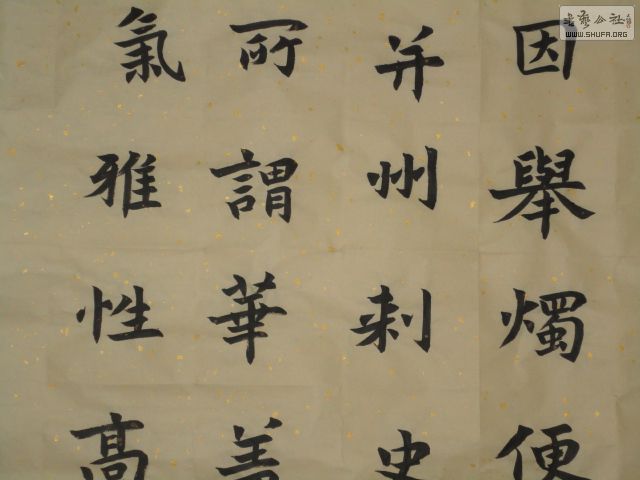 因舉燭便
并州刺史
所謂華善
氣雅性高
书艺公社
WWW.SHUFA.ORG